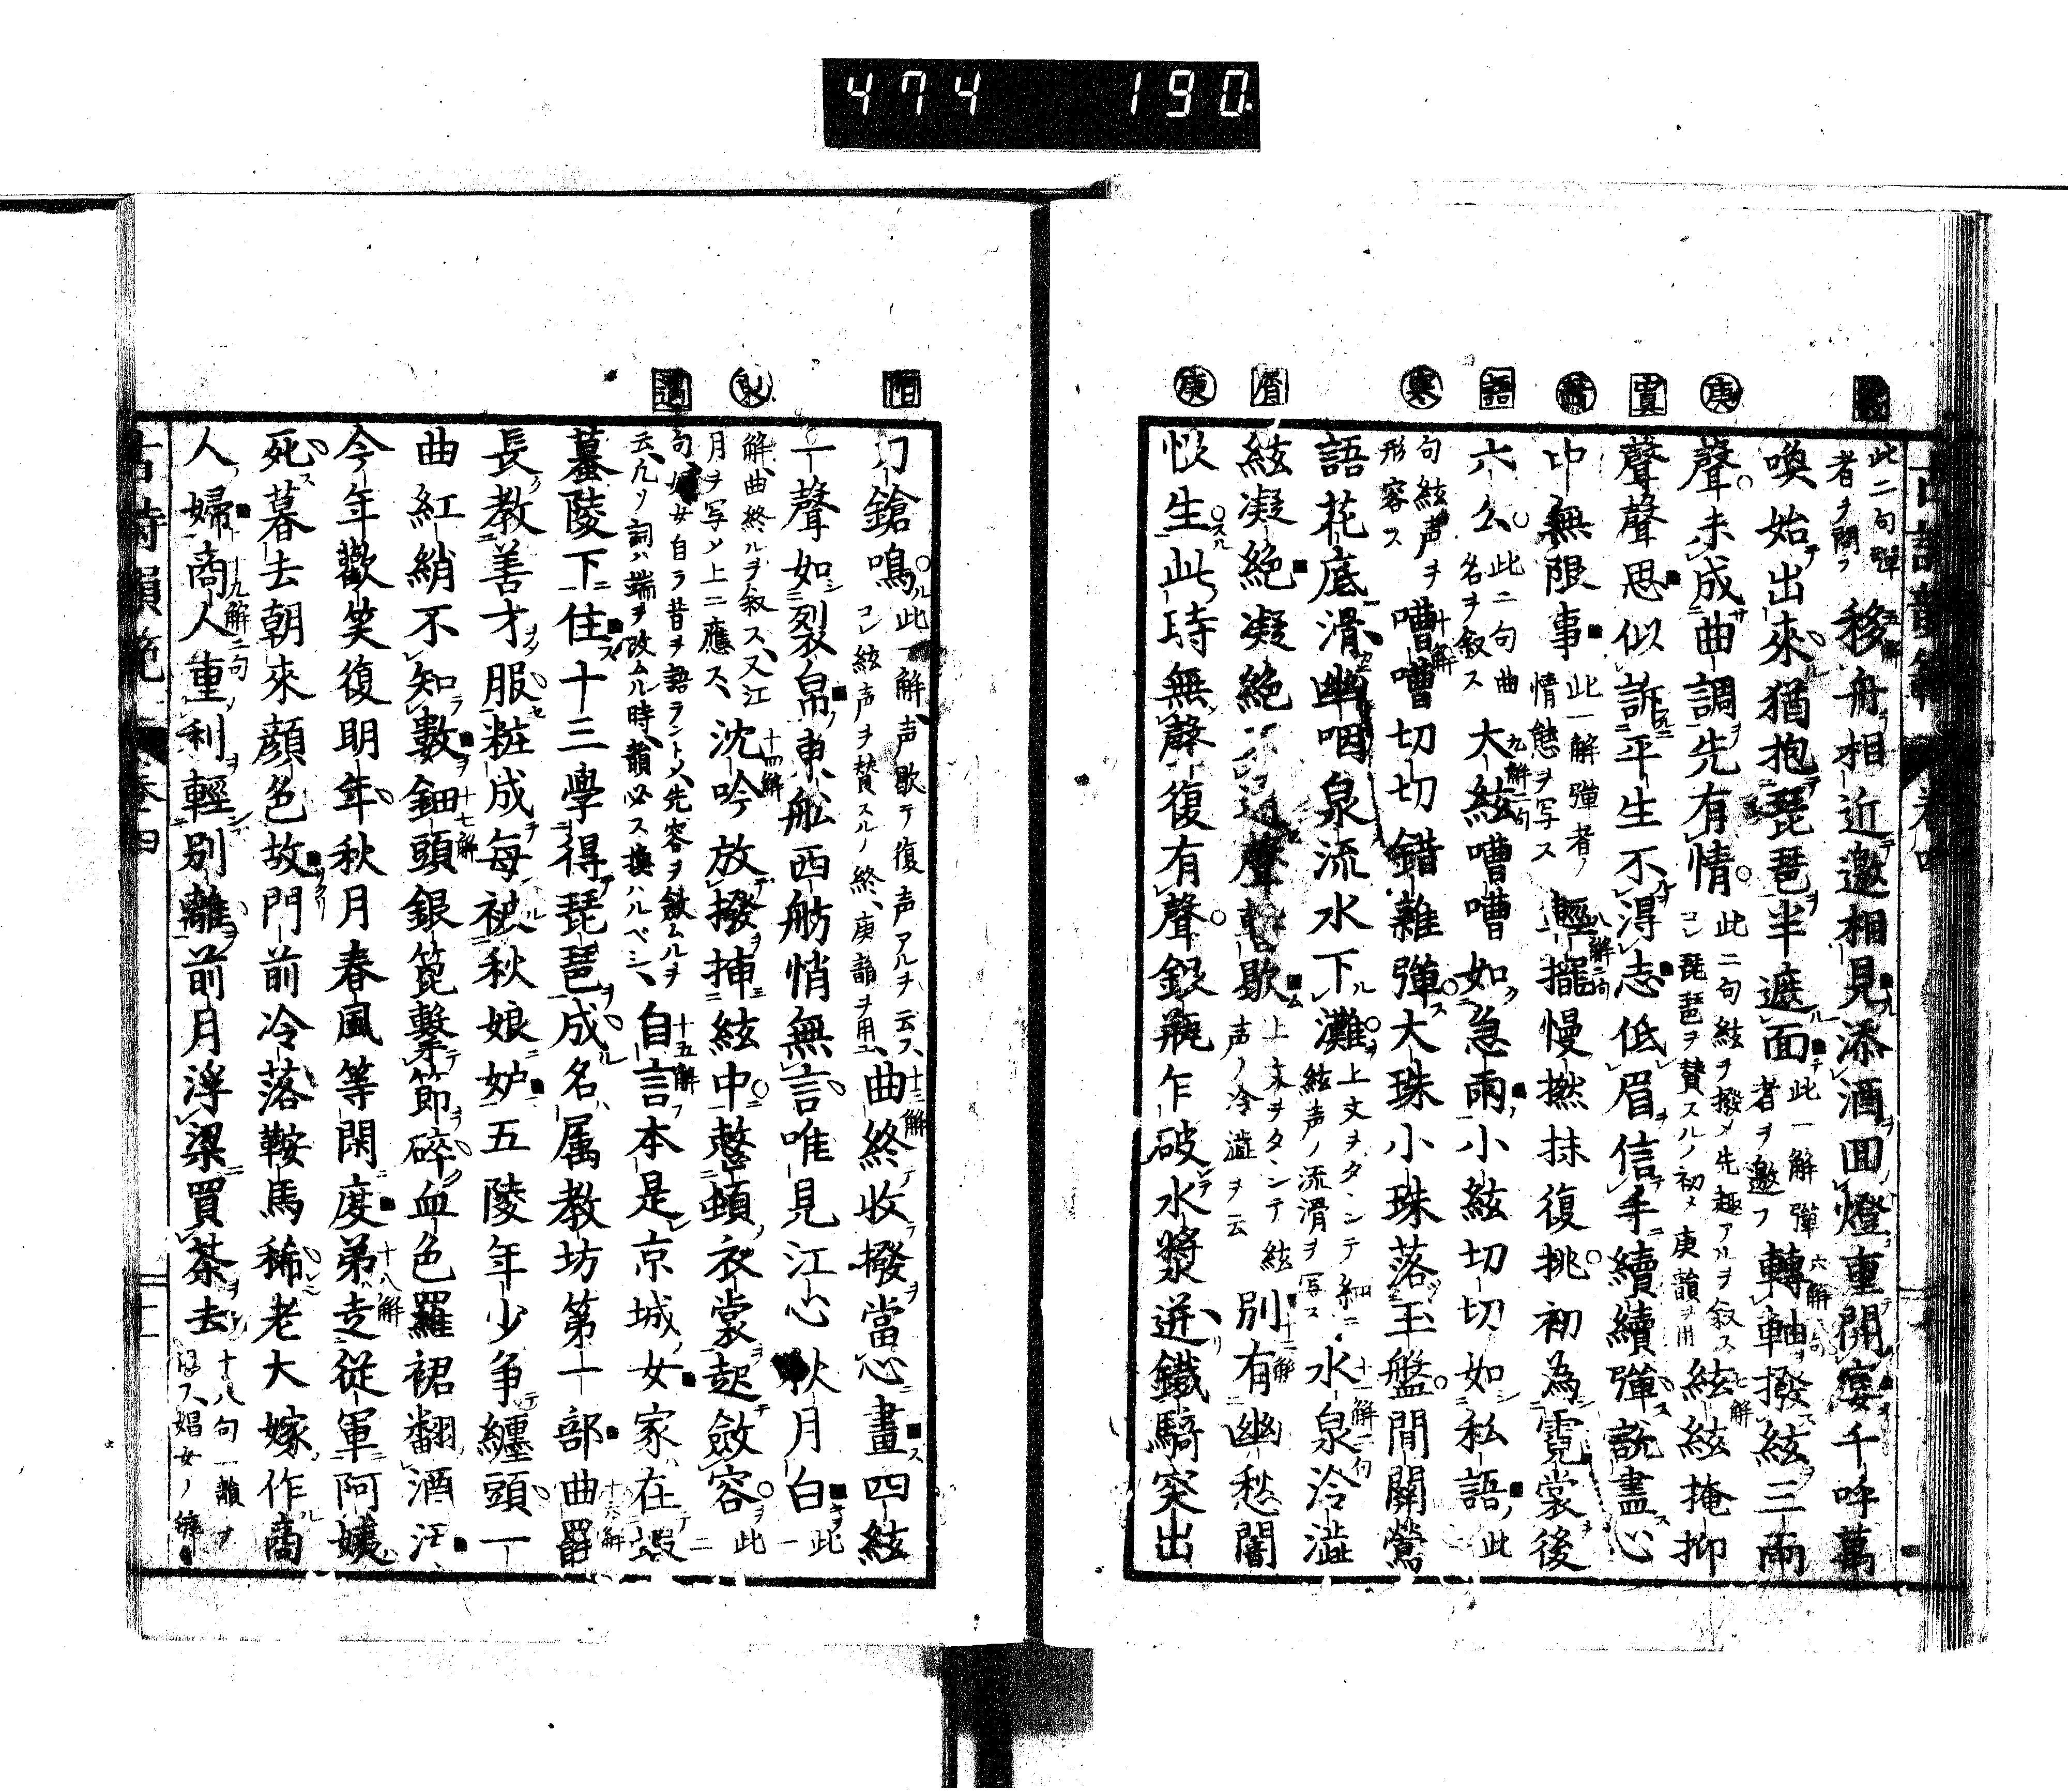 474 190
庚
虞
語
寒
庚
此二句彈
者ヲ問フ
移舟相近邀相見添酒回燈重開宴千呼萬
喚始出來猶抱琵琶半遮面
此一解彈
者ヲ邀フ
轉軸撥絃三兩
聲未成曲調先有情
此二句絃ヲ撥メ先趣アルヲ叙ス
コレ琵琶ヲ賛スルノ初メ庚韻ヲ用
絃絃掩抑
聲聲思似訴平生不得志低眉信手續續彈說盡心
中無限事
此一解彈者ノ
情態ヲ写ス
輕攏慢撚抹復挑初為霓裳後
六么
此二句曲
名ヲ叙ス
大絃嘈嘈如急雨小絃切切如私語
此
句絃声ヲ
形容ス
嘈嘈切切錯雜彈大珠小珠落玉盤間關鶯
語花底滑幽咽泉流水下灘
上文ヲタンテ細ニ
絃声ノ流滑ヲ写ス
水泉冷澁
絃凝絕凝絕不通聲暫歇
上文ヲタンテ絃
声ノ冷澁ヲ云
別有幽愁闇
恨生此時無聲復有聲銀瓶乍破水漿迸鐵騎突出
刀鎗鳴
此一解声歇テ復声アルヲ云フ
コレ絃声ヲ賛スルノ終、庚韻ヲ用ユ
曲終收撥當心畫四絃
一聲如裂帛東舩西舫悄無言唯見江心秋月白
此一
解曲終ルヲ叙ス、又江
月ヲ写メ上ニ應ス、
沈吟放撥挿絃中整頓衣裳起斂容
此二
句妓女自ラ昔ヲ語ラントメ、先容ヲ斂ムルヲ
云、凡ソ詞ハ端ヲ改ムル時、韻必ス換ハルベシ、
自言本是京城女家在蝦
蟇陵下住十三學得琵琶成名属教坊第一部曲罷
長教善才服粧成每被秋娘妒五陵年少争纏頭一
曲紅綃不知數鈿頭銀篦擊節碎血色羅裙翻酒汙
今年歡笑復明年秋月春風等閑度弟走從軍阿姨
死暮去朝來顏色故門前冷落鞍馬稀老大嫁作商
人婦商人重利輕別離前月浮梁買茶去
十八句一韻ヲ
古詩韻範 巻四